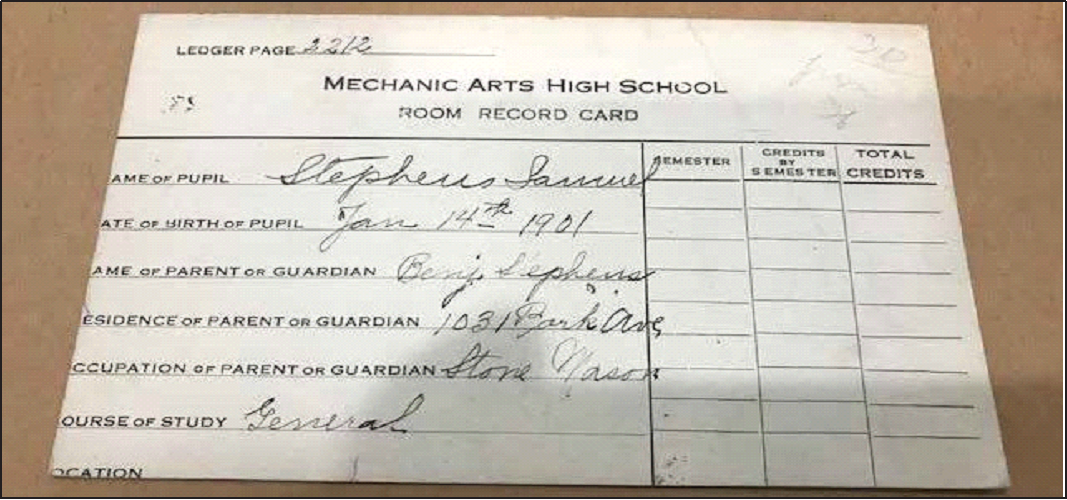 LEDGER PAGE 2212
MECHANIC ARTS HIGH SCHOOL
ROOM RECORD CARD
SEMESTER CREDITS BY SEMESTER TOTAL CREDITS
AME OF PUPIL Stephens Samuel
ATE OF BIRTH OF PUPIL Jan 14th 1901
AME OF PARENT OR GUARDIAN Benj. Stephens
ESIDENCE OF PARENT OR GUARDIAN 1031 Park Ave
CCUPATION OF PARENT OR GUARDIAN Stone Mason
OURSE OF STUDY General
OCATION